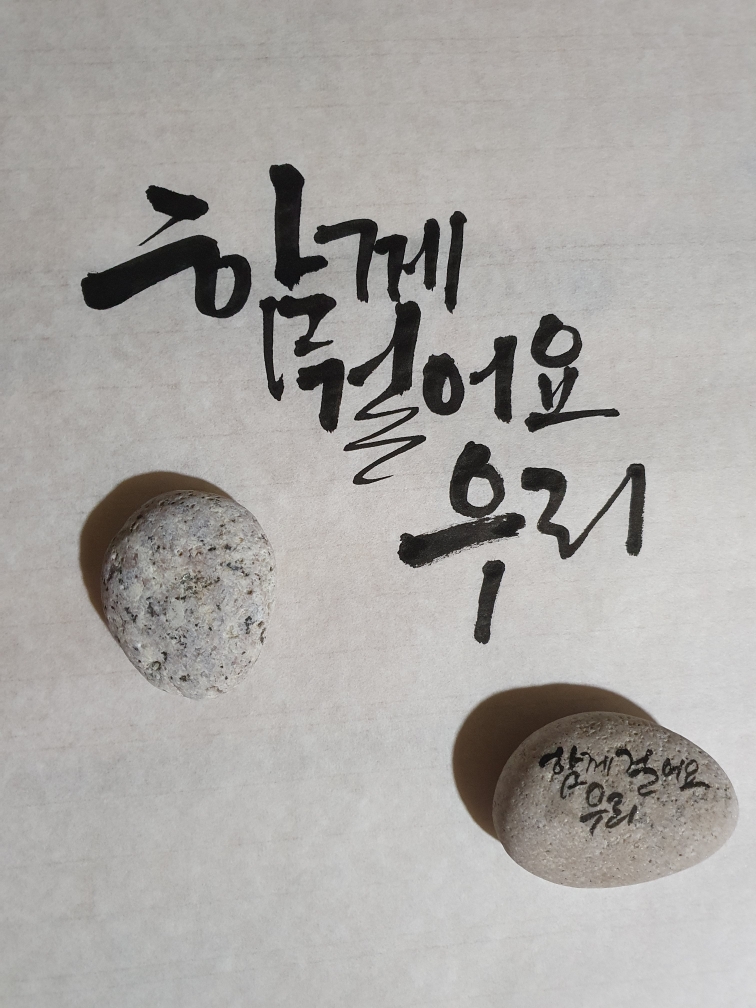 함께
걸어요
우리
함께 걸어요
우리